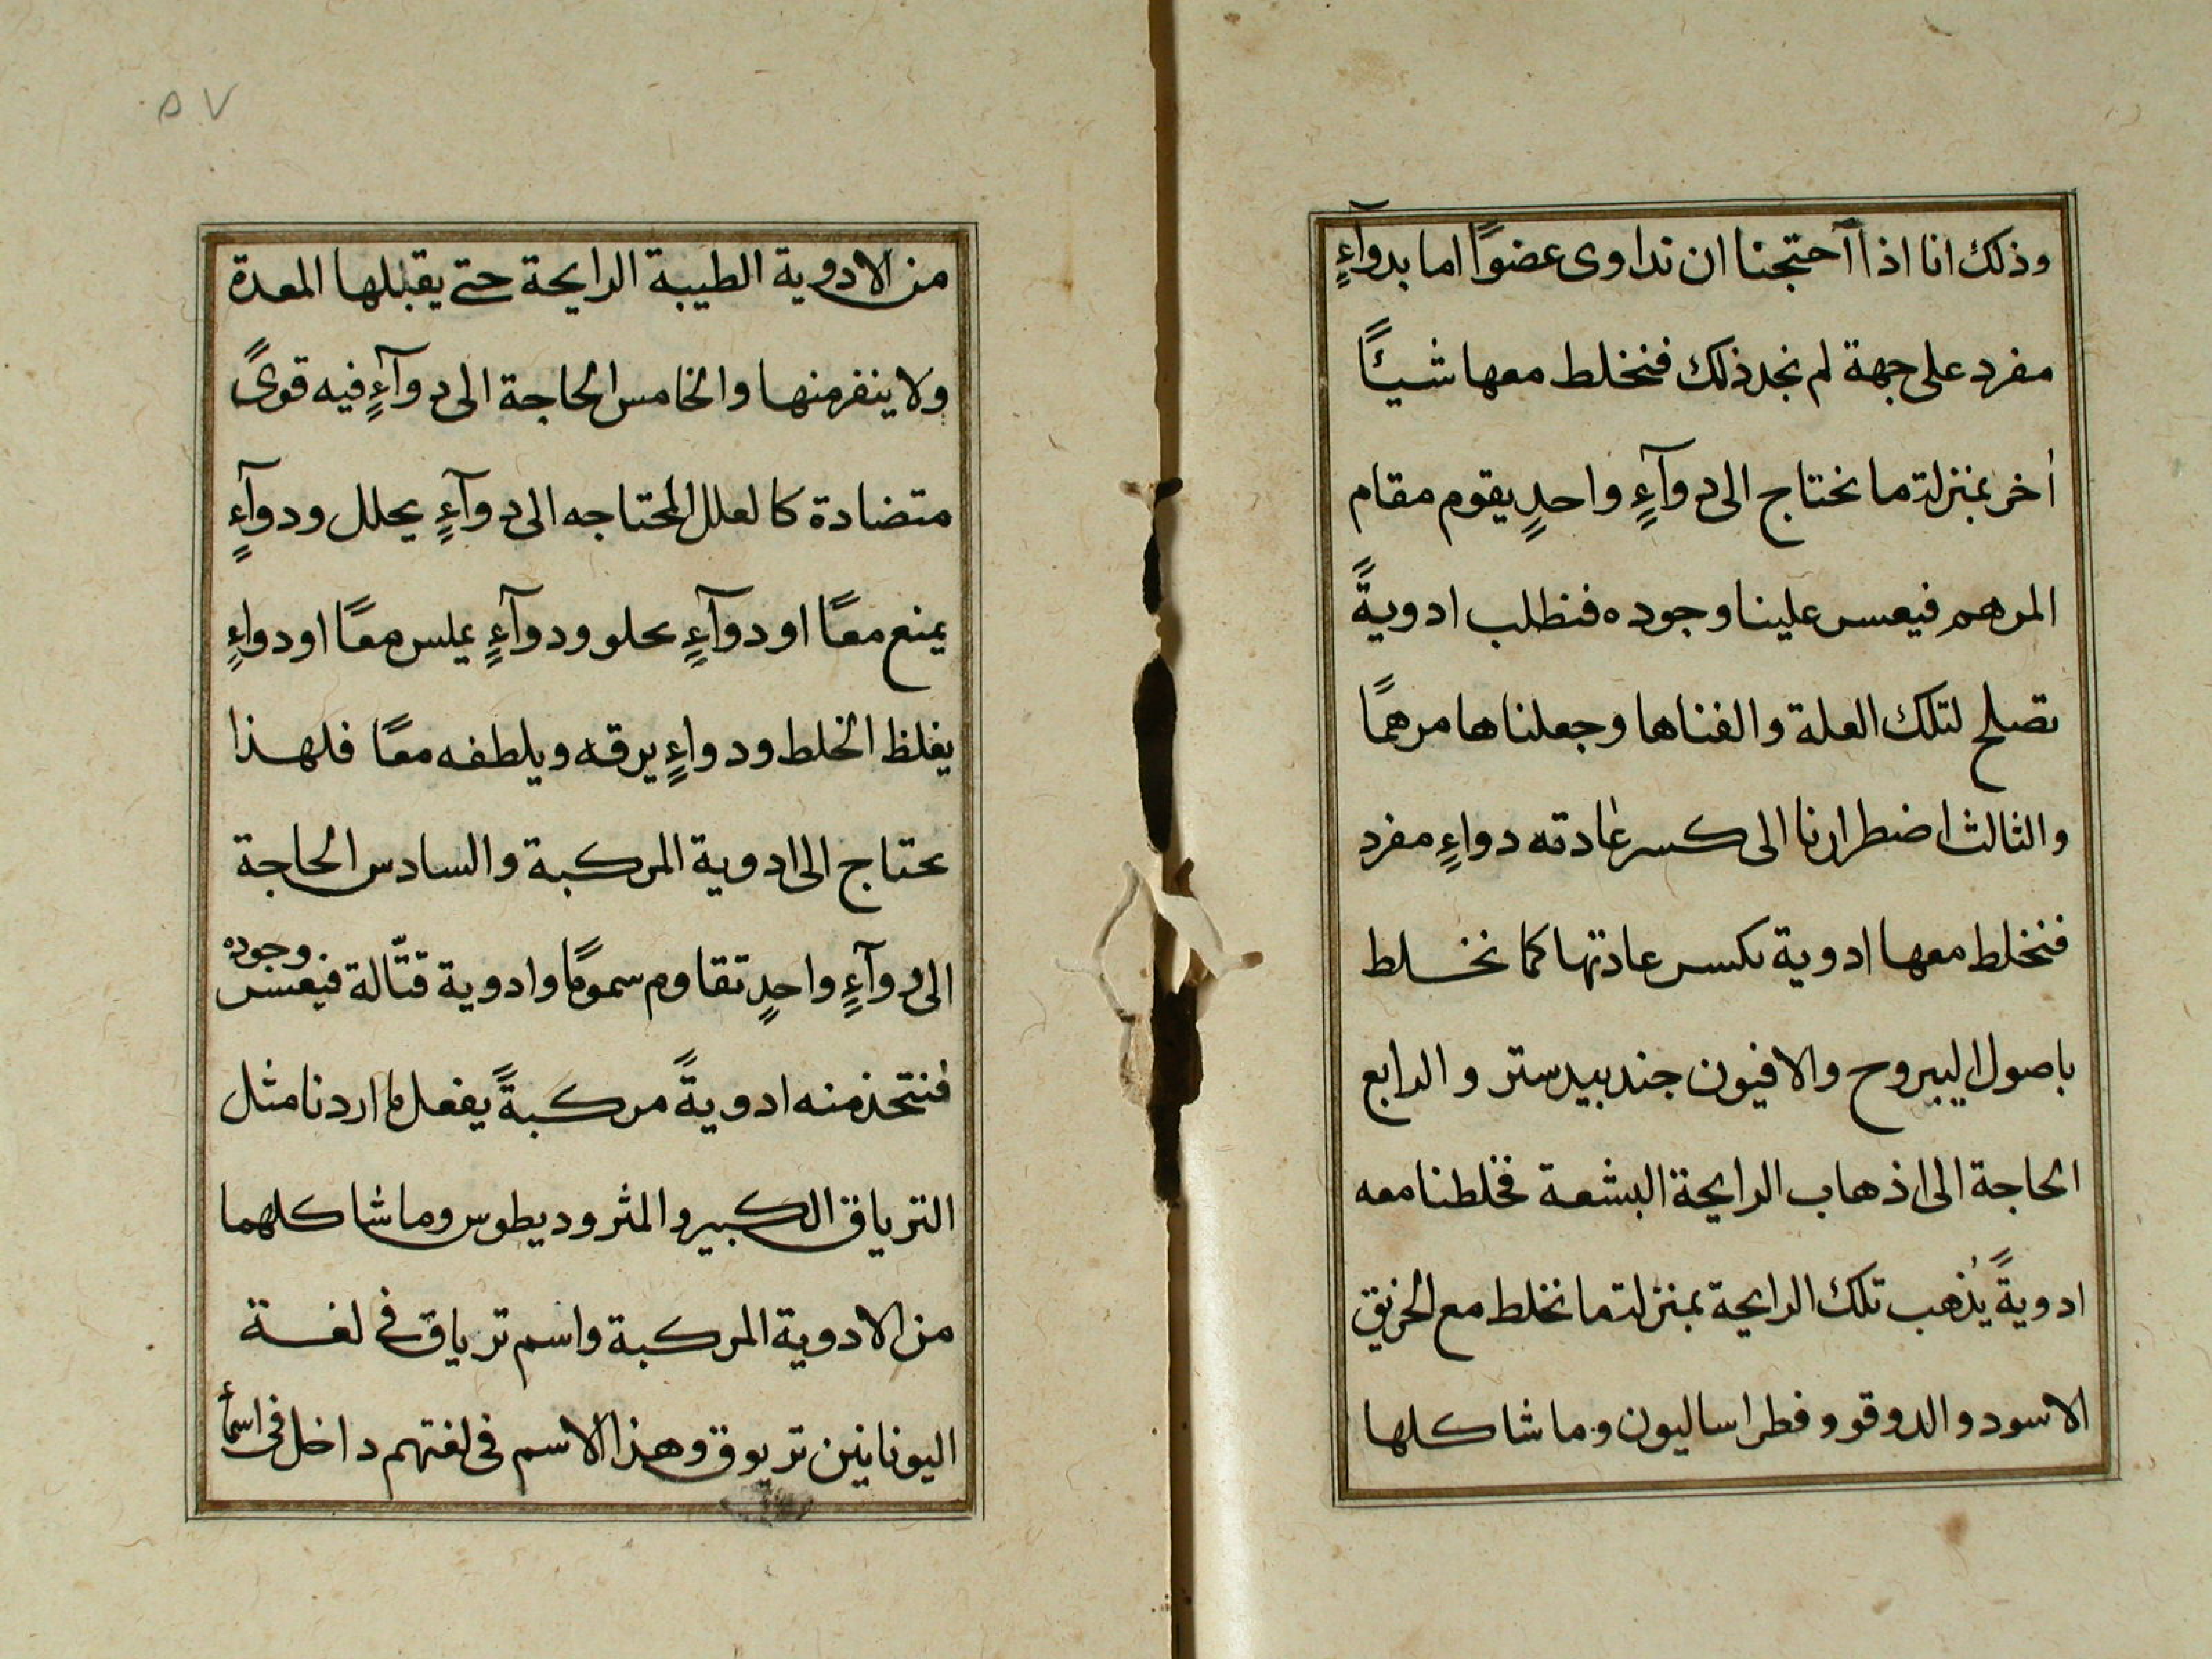 وذلك انا اذا آحتجنا ان نداوى عضوًا اما بدوآءٍ
مفرد على جهة لم نجد ذلك فنخلط معها شيئًا
أخر بمنزلة ما نحتاج الى دوآءٍ واحدٍ يقوم مقام
المرهم فيعسر علينا وجوده فنطلب ادويةً
تصلح لتلك العلة والفناها وجعلناها مرهمًا
والثالث اضطرارنا الى كسر عادته دواءٍ مفرد
فنخلط معها ادوية تكسر عادتها كما نخلط
باصول اليبروح والافيون جندبيدستر والرابع
الحاجة الى اذهاب الرايحة البشعة فخلطنا معه
ادويةً يُذهب تلك الرايحة بمنزلة ما نخلط مع الخربق
الاسود والدوقو وفطراساليون وما شاكلها
٥٧
من الادوية الطيبة الرايحة حتى يقبلها المعدة
ولا ينفر منها والخامس الحاجة الى دوآءٍ فيه قوىً
متضادة كالعلل المحتاجه الى دوآءٍ يحلل ودوآءٍ
يمنع معًا او دوآءٍ يحلو ودوآءٍ يملس معًا او دواءٍ
يغلظ الخلط ودواءٍ يرقه ويلطفه معًا فلهذا
يحتاج الى ادوية المركبة والسادس الحاجة
الى دوآءٍ واحدٍ تقاوم سمومًا وادوية قتّالة فيعسر وجوده
فنتخذ منه ادويةً مركبةً يفعل ما اردنا مثل
الترياق الكبير والمثروديطوس وما شاكلهما
من الادوية المركبة واسم ترياق في لغة
اليونانين تريوق وهذا الاسم فى لغتهم داخل فى اسمأ